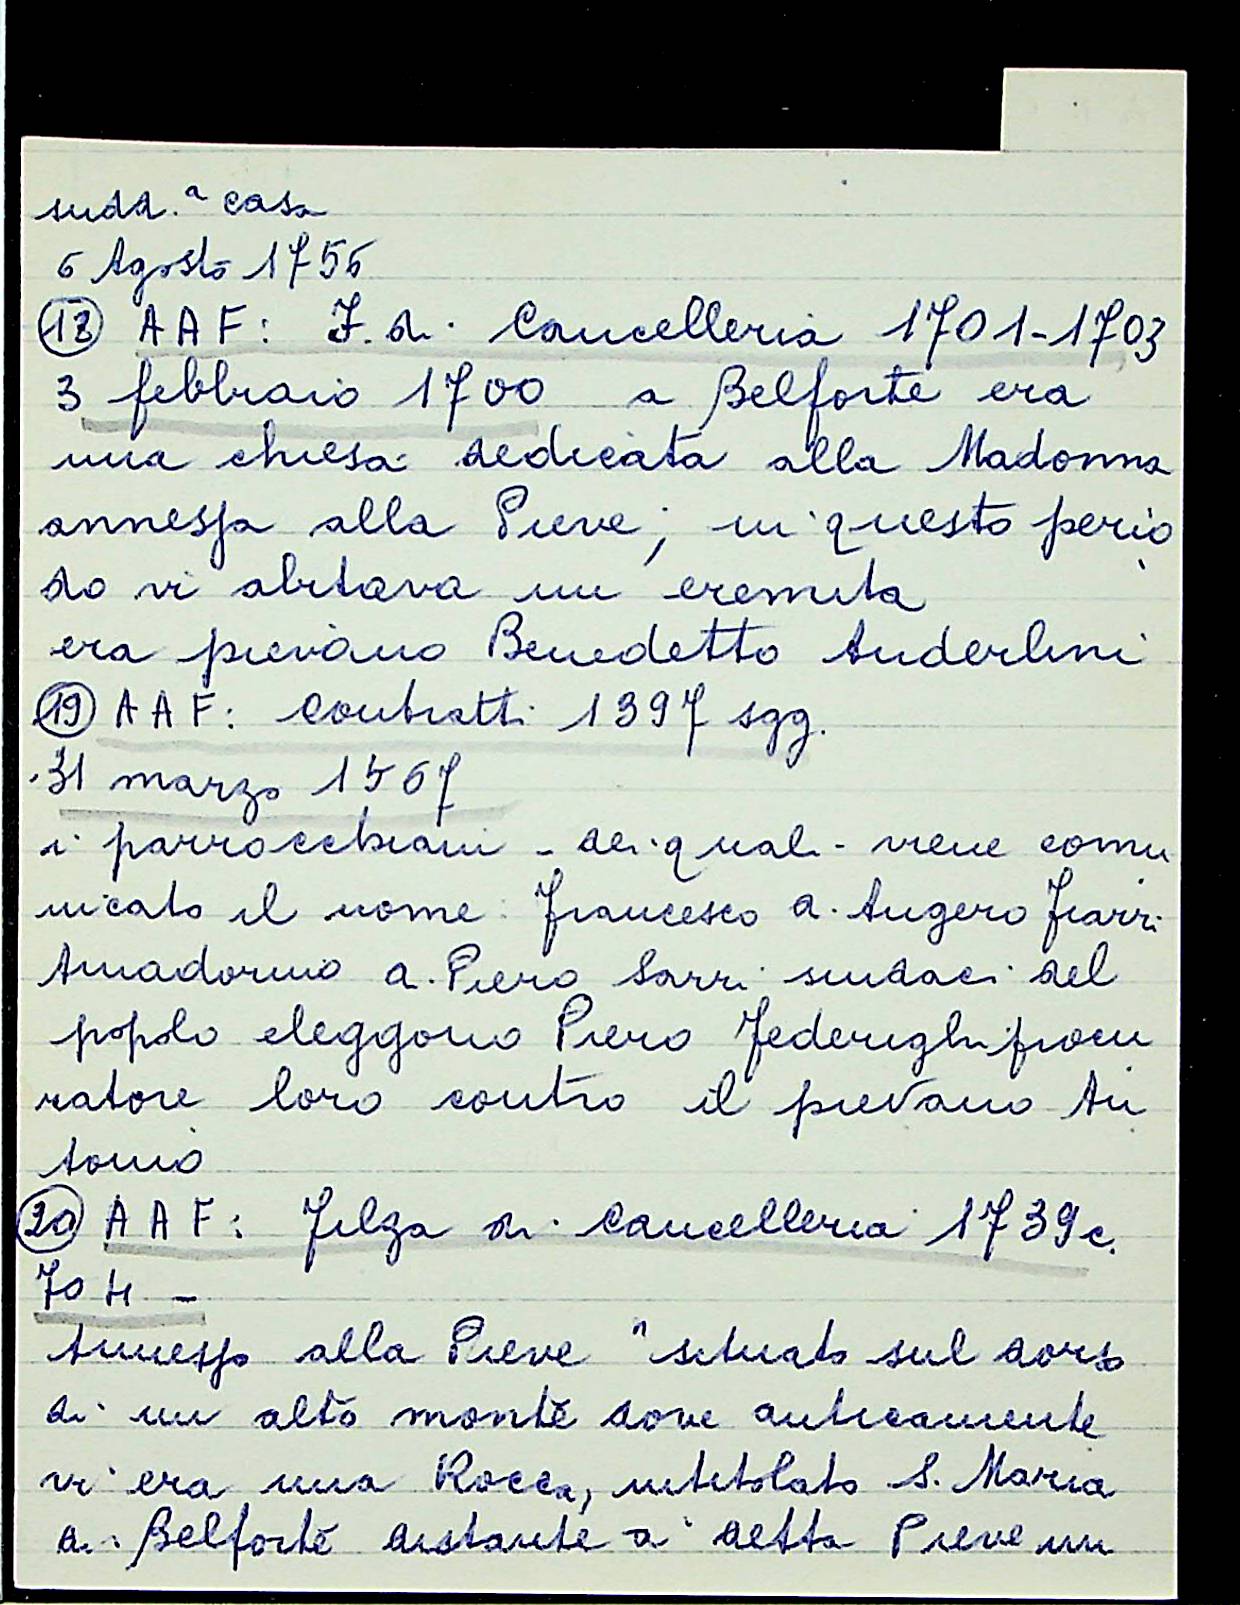 sudd.ª casa
6 Agosto 1756
(18) A A F: F. di Cancelleria 1701-1703
3 febbraio 1700 a Belforte era
una chiesa dedicata alla Madonna
annessa alla Pieve; in questo perio
do vi abitava un eremita
era pievano Benedetto Anderlini
(19) A A F: Contratti 1397 sgg.
31 marzo 1567
i parrocchiani - dei quali - viene comu
nicato il nome: Francesco d. Angero
Amadorino d. Piero Sarri sindaci del
popolo eleggono Piero Federighi procu
ratore loro contro il pievano An
tonio
(20) A A F: Filza di Cancelleria 1739 c.
704 -
Annesso alla Pieve "situato sul dorso
di un alto monte dove anticamente
vi era una Rocca, intitolato S. Maria
a Belforte distante a detta Pieve un